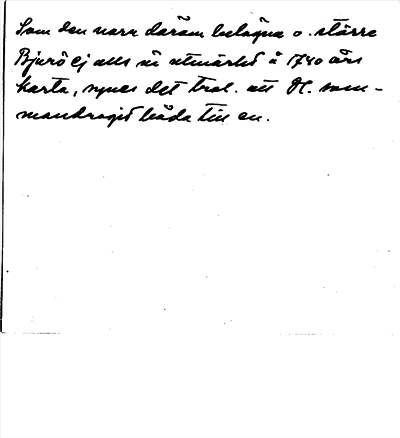 Som den norr därom belägna o. större
Bjurö ej alls är utmärkt å 1740 års
karta, synes det trol. att Öl. sam-
mandragit båda till en.